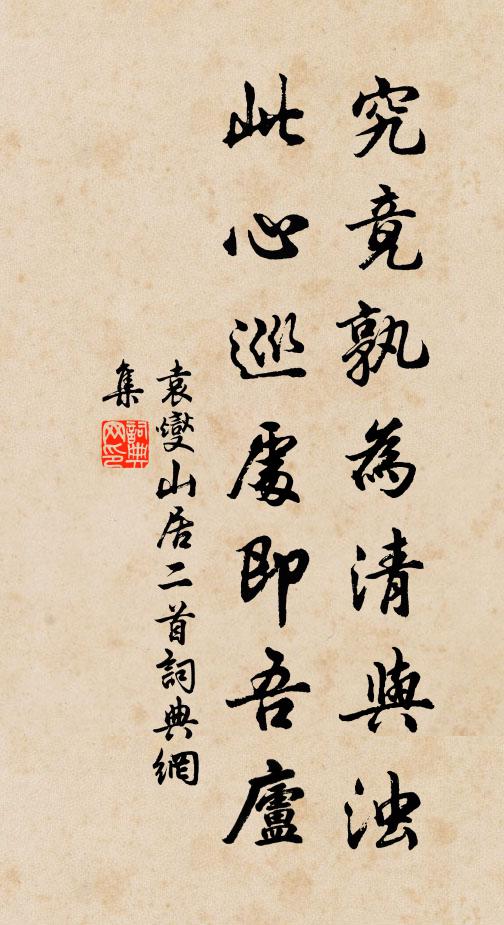 究竟孰為清與浊
此心巡處即吾廬
袁燮山居二首詞典網
集
詞典
网印